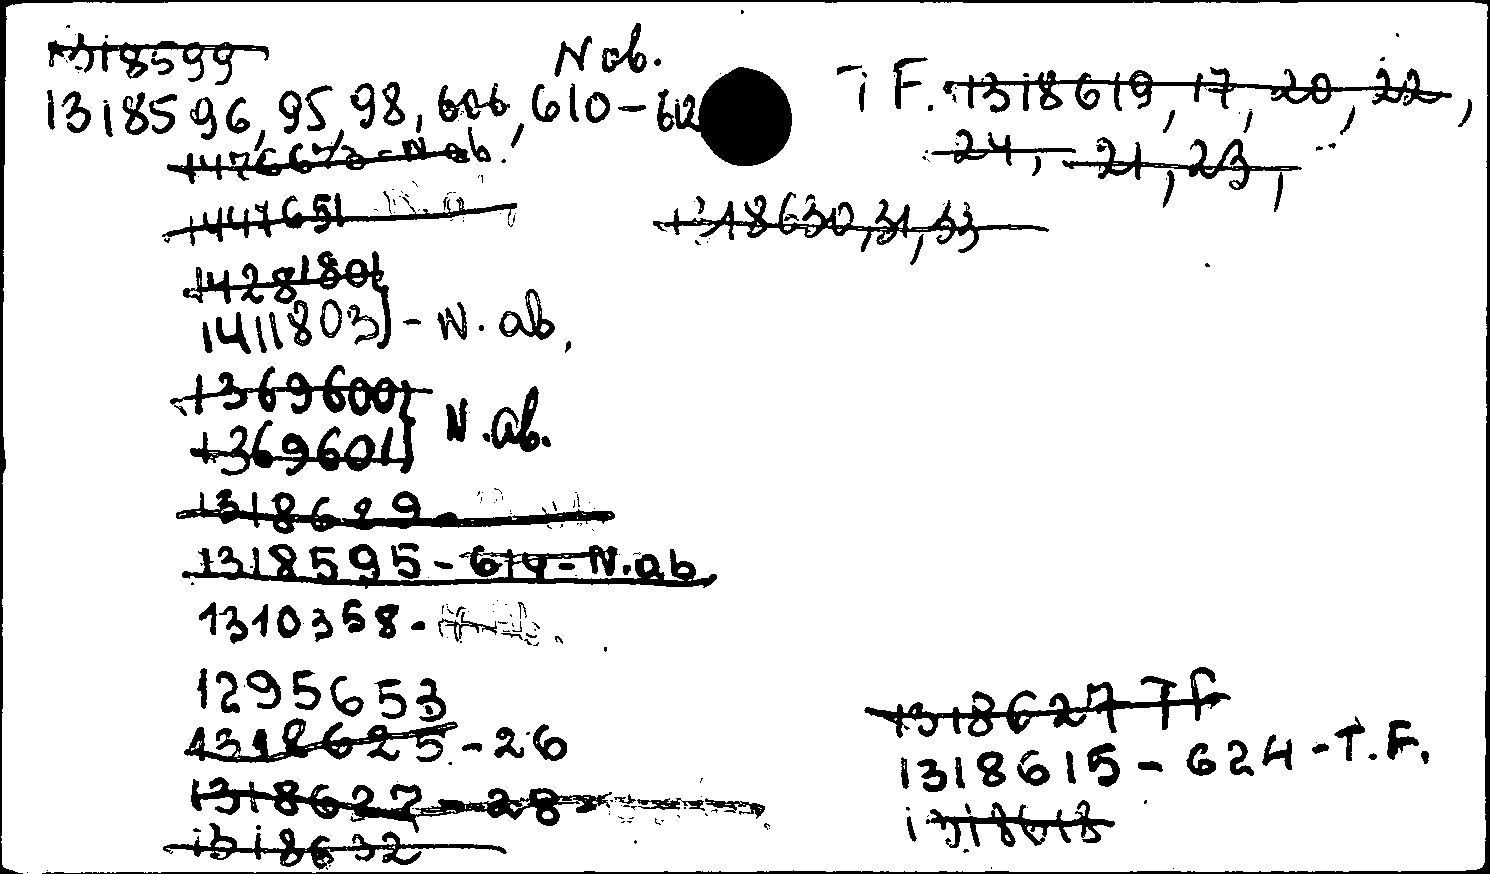 1318599
N ab.
1318596, 95, 98, 606, 610-612
T F. 1318619, 17, 20, 22,
24, 21, 23,
1476673-N ab.
1447651
1318630, 31, 33
1428180
1411803 - N. ab,
1369600
1369601 N.ab.
1318629-
1318595-614-N.ab
1310358-
1295653
1318625-26
1318627-28-
1318632
1318627 TF
1318615-624-T.F.
1318618